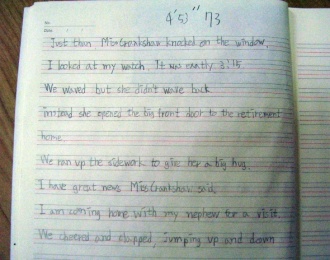 4'53" 73
No.
Date
Just then Miss Crankshaw knocked on the window.
I looked at my watch. It was exartly 3:15
We waved but she didn't wave back
instead she opened the big front door to the retirement
home.
We ran up the sidework to give her a big hug.
I have great news Miss Crankshaw said,
I am coming home with my nephew for a visit.
We cheered and slapped, jumping up and down